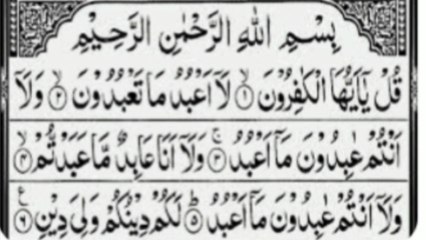 بِسْمِ اللهِ الرَّحْمٰنِ الرَّحِيْمِ
قُلْ يٰٓاَيُّهَا الْكٰفِرُوْنَ ۙ‏﴿۱﴾ لَاۤ اَعْبُدُ مَا تَعْبُدُوْنَ ۙ‏﴿۲﴾ وَلَاۤ
اَنْتُمْ عٰبِدُوْنَ مَاۤ اَعْبُدُ ۚ‏﴿۳﴾ وَلَاۤ اَنَا عَابِدٌ مَّا عَبَدْتُّمْ ۙ‏﴿۴﴾
وَلَاۤ اَنْتُمْ عٰبِدُوْنَ مَاۤ اَعْبُدُ ؕ‏﴿۵﴾ لَكُمْ دِيْنُكُمْ وَلِىَ دِيْنِ ‏﴿۶﴾ ع